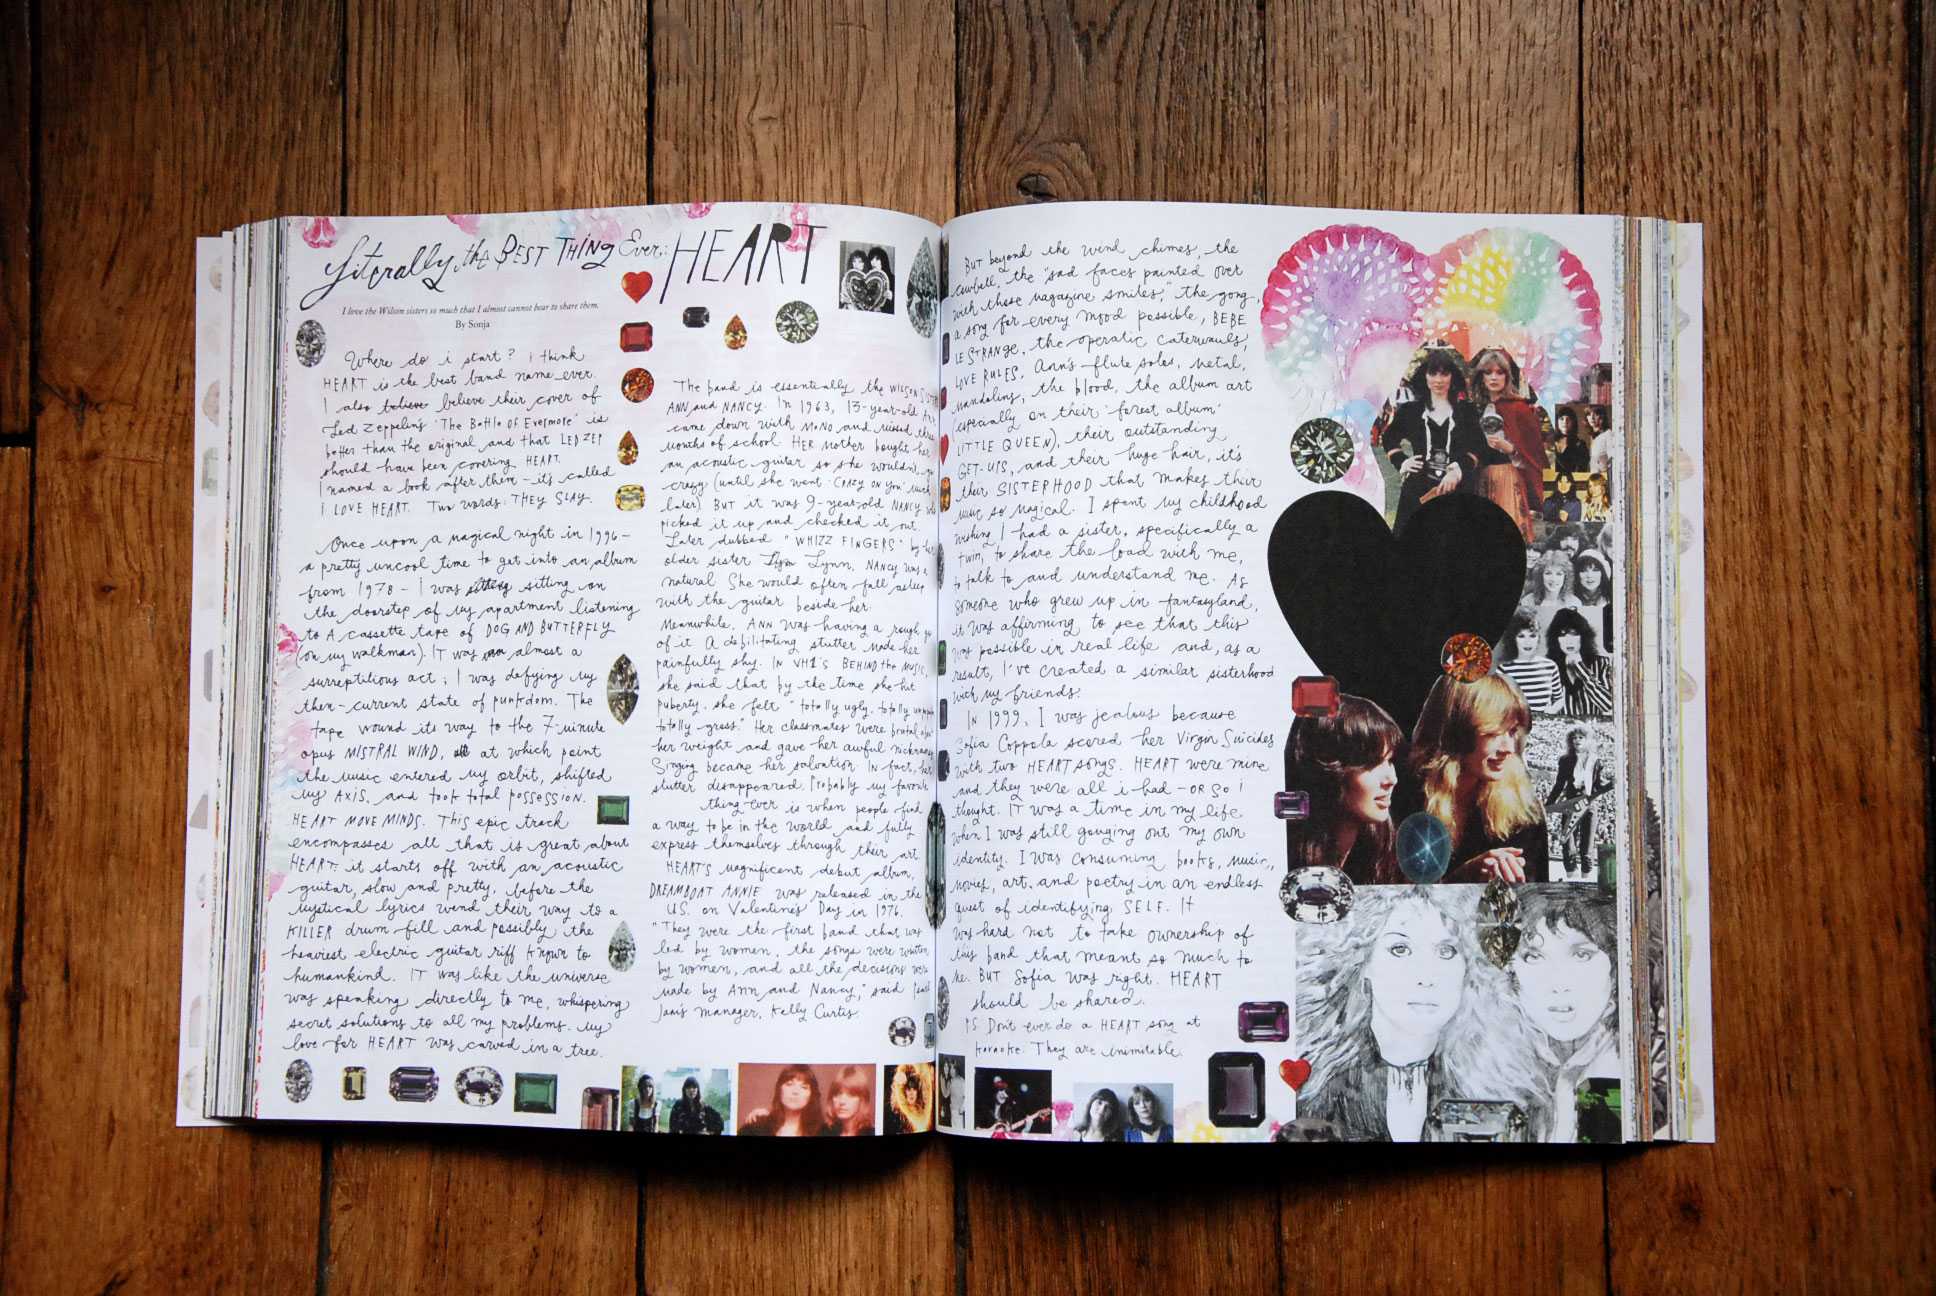 Literally the BEST THING Ever: HEART
I love the Wilson sisters so much that I almost cannot bear to share them.
By Sonja
Where do i start? i think
HEART is the best band name ever.
I also believe believe their cover of
Led Zeppelin's "The Battle of Evermore" is
better than the original and that LED ZEP
should have been covering HEART.
I named a book after them – it's called
I LOVE HEART. Two words: THEY SLAY.
Once upon a magical night in 1996 –
a pretty uncool time to get into an album
from 1978 – I was sitting on
the doorstep of my apartment listening
to A cassette tape of DOG AND BUTTERFLY
(on my walkman). IT was almost a
surreptitious act; I was defying my
then-current state of punkdom. The
tape wound its way to the 7-minute
opus MISTRAL WIND, at which point
the music entered my orbit, shifted
my AXIS, and took total possession.
HEART MOVE MINDS. This epic track
encompasses all that is great about
HEART: it starts off with an acoustic
guitar, slow and pretty, before the
mystical lyrics wend their way to a
KILLER drum fill and possibly the
heaviest electric guitar riff known to
humankind. IT was like the universe
was speaking directly to me, whispering
secret solutions to all my problems. My
love for HEART was carved in a tree.
The band is essentially the WILSON
ANN and NANCY. In 1963, 13-year-old Ann
came down with MONO and missed three
months of school. HER mother bought her
an acoustic guitar so she wouldn't go
crazy (until she went "CRAZY ON YOU" much
later) BUT it was 9-year-old NANCY who
picked it up and checked it out.
Later dubbed "WHIZZ FINGERS" by her
older sister Lynn, NANCY was a
natural She would often fall asleep
with the guitar beside her.
Meanwhile, ANN was having a rough go
of it A debilitating stutter made her
painfully shy. IN VH1'S BEHIND the MUSIC,
she said that by the time she hit
puberty, she felt "totally ugly, totally
totally gross." Her classmates were brutal about
her weight and gave her awful nicknames
Singing became her salvation IN fact, her
stutter disappeared. Probably my favorite
thing ever is when people find
a way to be in the world and fully
express themselves through their art.
HEART'S magnificent debut album,
DREAMBOAT ANNIE was released in the
U.S. on Valentine's Day in 1976.
"They were the first band that was
led by women, the songs were written
by women, and all the decisions were
made by Ann and Nancy," said
manager, Kelly Curtis.
BUT beyond the wind chimes, the
cowbell, the "sad faces painted over
with those magazine smiles," the gong,
a song for every mood possible, BEBE
LE STRANGE, the operatic caterwauls,
LOVE RULES, Ann's flute solos, metal,
mandolins, the blood, the album art
(especially on their 'forest album'
LITTLE QUEEN), their outstanding
GET-UPS, and their huge hair, it's
their SISTERHOOD that makes their
music so magical. I spent my childhood
wishing I had a sister, specifically a
twin, to share the load with me,
to talk to and understand me. As
someone who grew up in fantasyland,
it was affirming to see that this
was possible in real life and, as a
result, I've created a similar sisterhood
with my friends.
IN 1999, I was jealous because
Sofia Coppola scored her Virgin Suicides
with two HEART songs. HEART were mine
and they were all i had – OR SO I
thought. IT was a time in my life
when I was still gouging out my own
identity. I was consuming books, music,
movies, art, and poetry in an endless
quest of identifying SELF. It
was hard not to take ownership of
this band that meant so much to
me. BUT Sofia was right. HEART
should be shared.
PS Don't ever do a HEART song at
karaoke. They are inimitable.